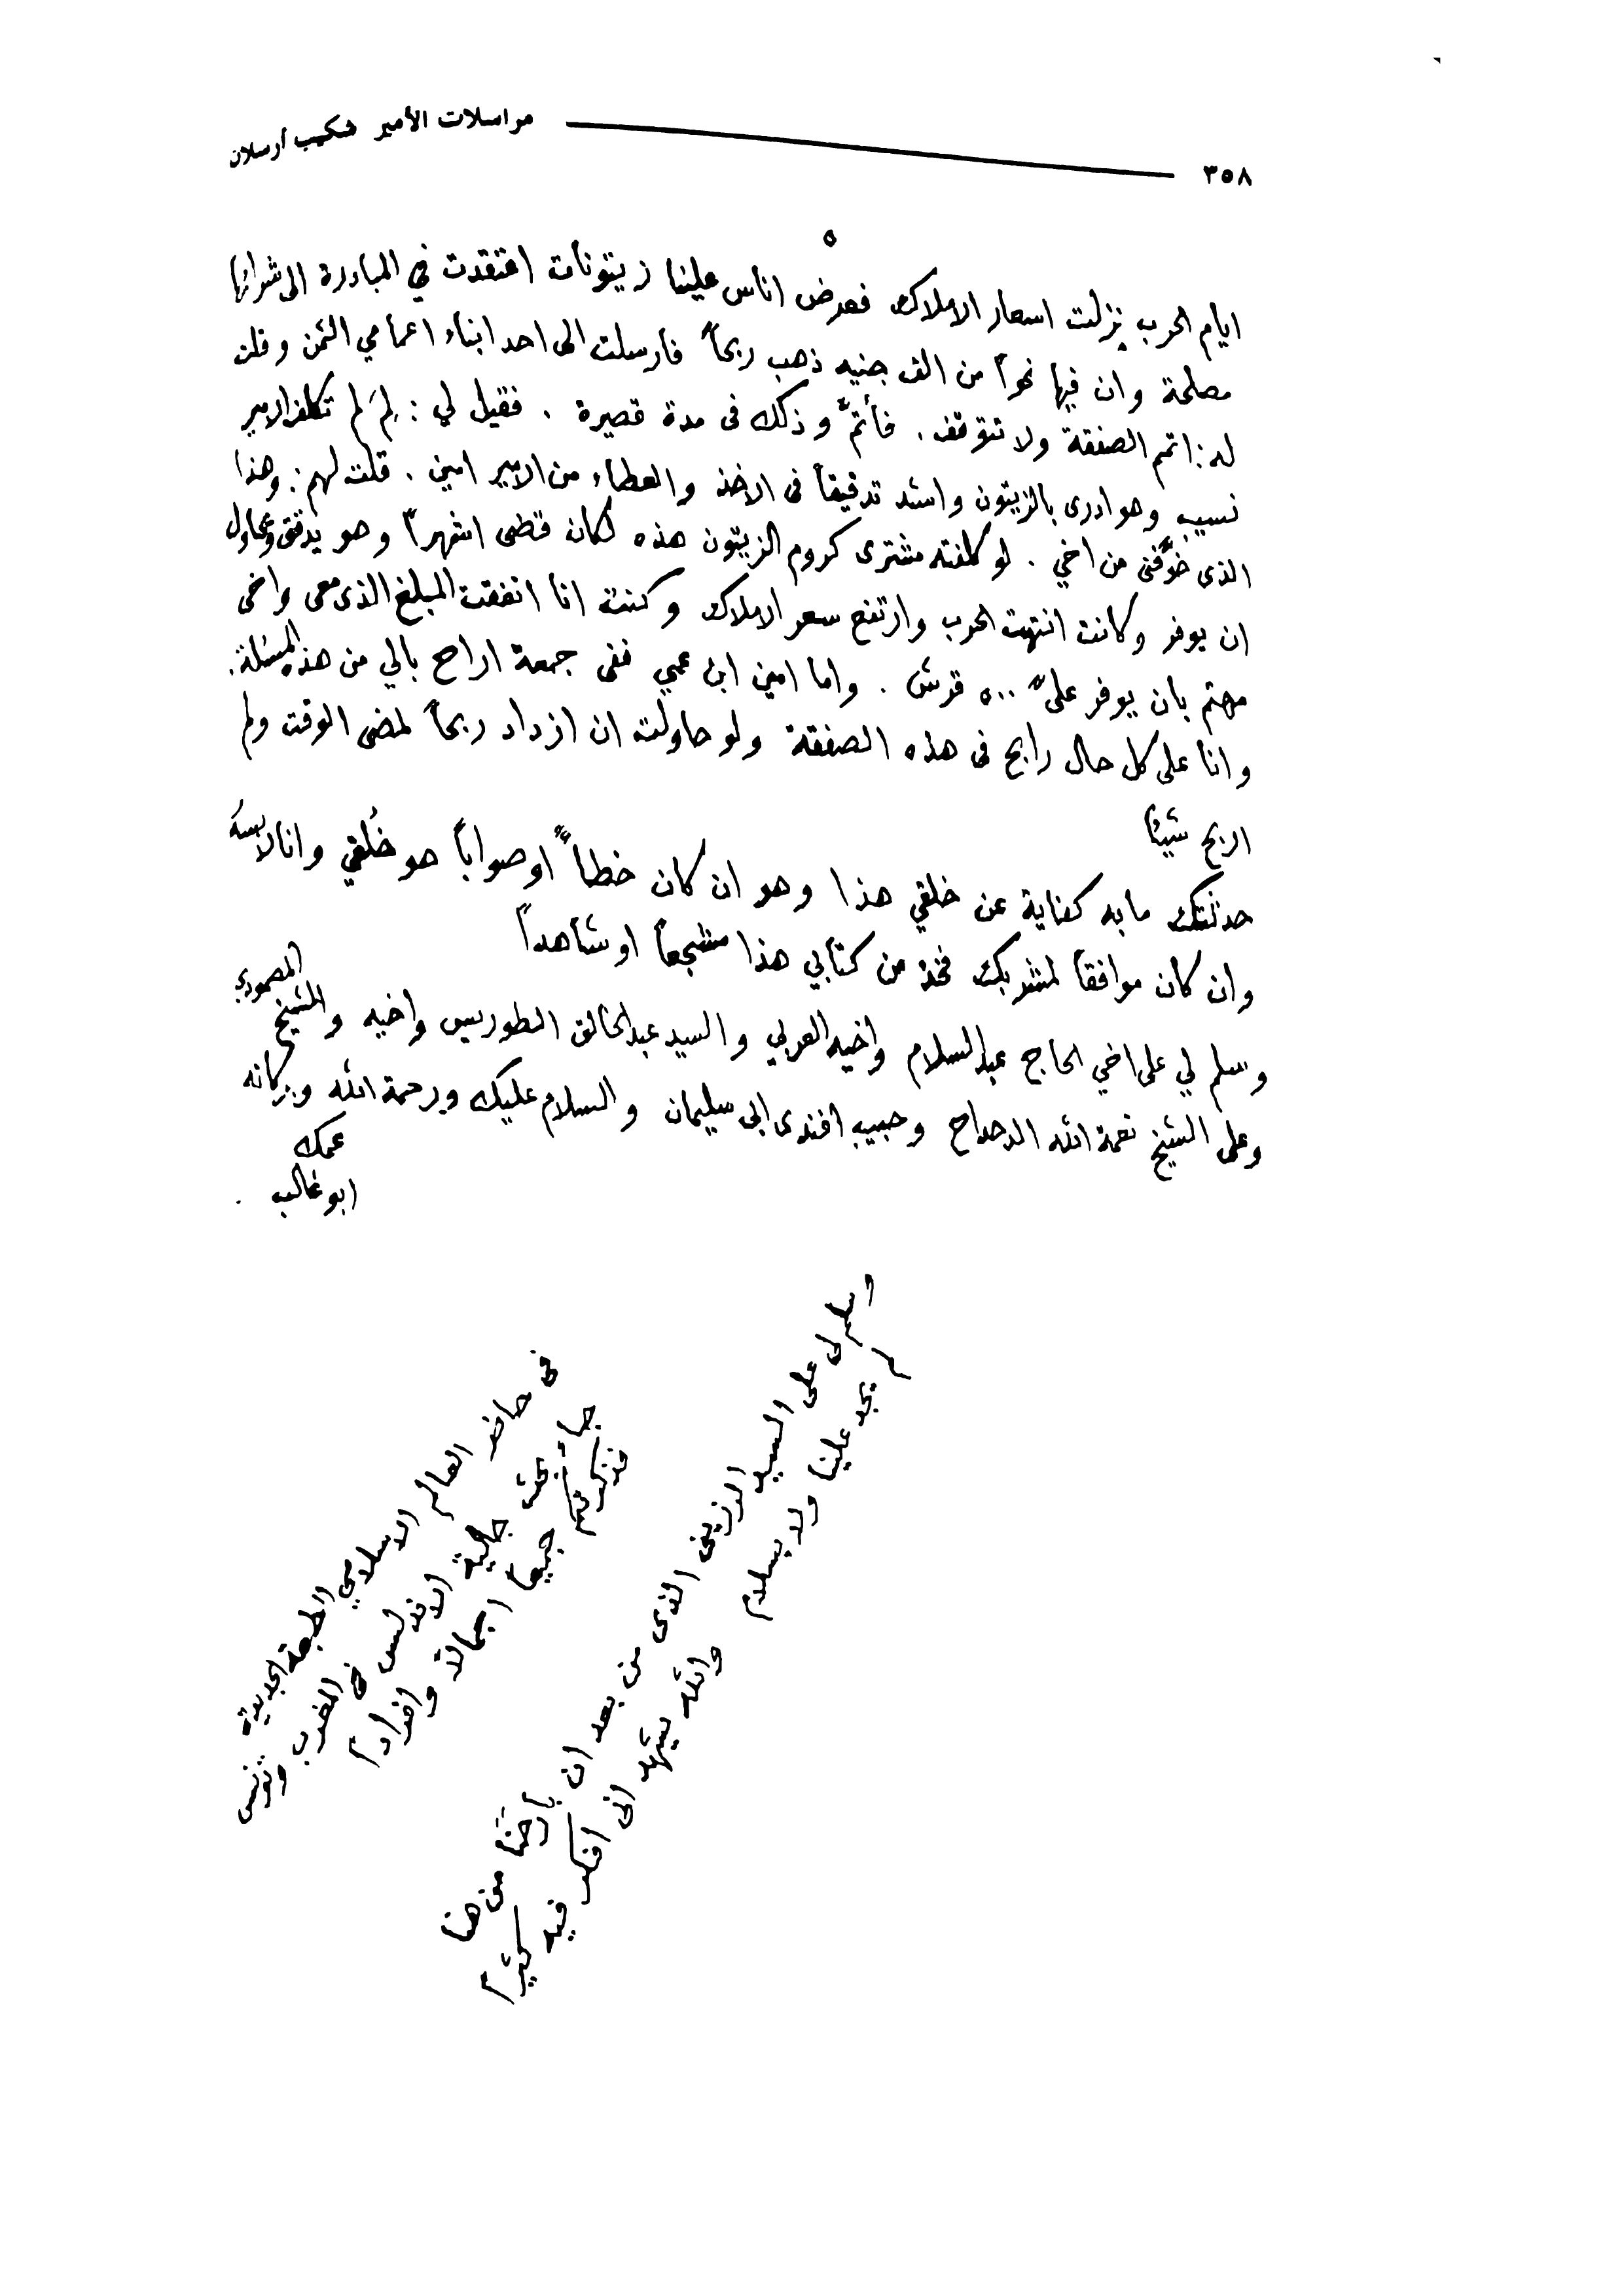 ٣٥٨ مراسلات الأمير شكيب أرسلان
٥
ايام الحرب نزلت اسعار الاملاك فعرض اناس علينا زيتونات اعتقدت في المبادرة الى شرائها
مصلحة وان فيها نحواً من الف جنيه ذهب ربحاً فارسلت الى احد ابناء اعمامي الثمن وقلت
له: اتمم الصفقة ولا تتوقف. فأتمّ وذلك في مدة قصيرة. فقيل لي: لِمَ لم تكلف الامير
نسيب وهو ادرى بالزيتون واشد تدقيقاً في الاخذ والعطاء من الامير امين. قلت لهم: وهذا
الذى خوّفنى من اخي. لو كلفته مشترى كروم الزيتون هذه لكان قضى اشهراً وهو يدقق ويحاول
ان يوفر وكانت انتهت الحرب وارتفع سعر الاملاك وكنت انا انفقت المبلغ الذى معى واخى
مهتم بان يوفر علىّ ٥٠٠ قرش. واما امين ابن عمي ففى جمعة اراح بالي من هذه المسئلة.
وانا على كل حال رابح فى هذه الصفقة ولو حاولت ان ازداد ربحاً لمضى الوقت ولم
اربح شيئاً
حدثتك ما به كفاية عن خلقي هذا وهو ان كان خطأً او صواباً هو خُلقي وانا لابسه
وان كان موافقاً لمشربك فخذ من كتابي هذا مشجعاً او شاهداً
وسلم لي على اخي الحاج عبد السلام واخيه العربي والسيد عبد الخالق الطوريس واخيه والشيخ المصمودي
وعلى الشيخ نعمة الله الدحداح وحبيب افندى ابى سليمان والسلام عليك ورحمة الله وبركاته
عمك
ابو غالب
وسلم لى على السيد الرزينى الذى من بعد ان بارَحَنا من هنا
لم يجد علينا ولا بسلام والله يشهد انى افكر فيه كثيراً
فى حاضر العالم الاسلامي الطبعة الجديدة
جاء بحث جالية الاندلس فى المغرب وتونس
فذكرتكم جميعاً اجمالاً وافراداً